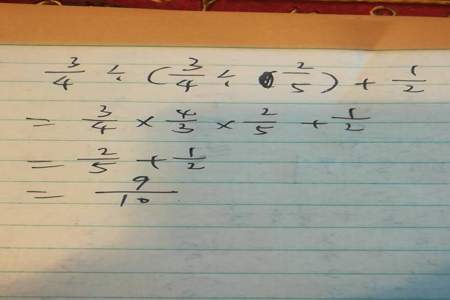 3/4 ÷ (3/4 ÷ 2/5) + 1/2
= 3/4 × 4/3 × 2/5 + 1/2
= 2/5 + 1/2
= 9/10